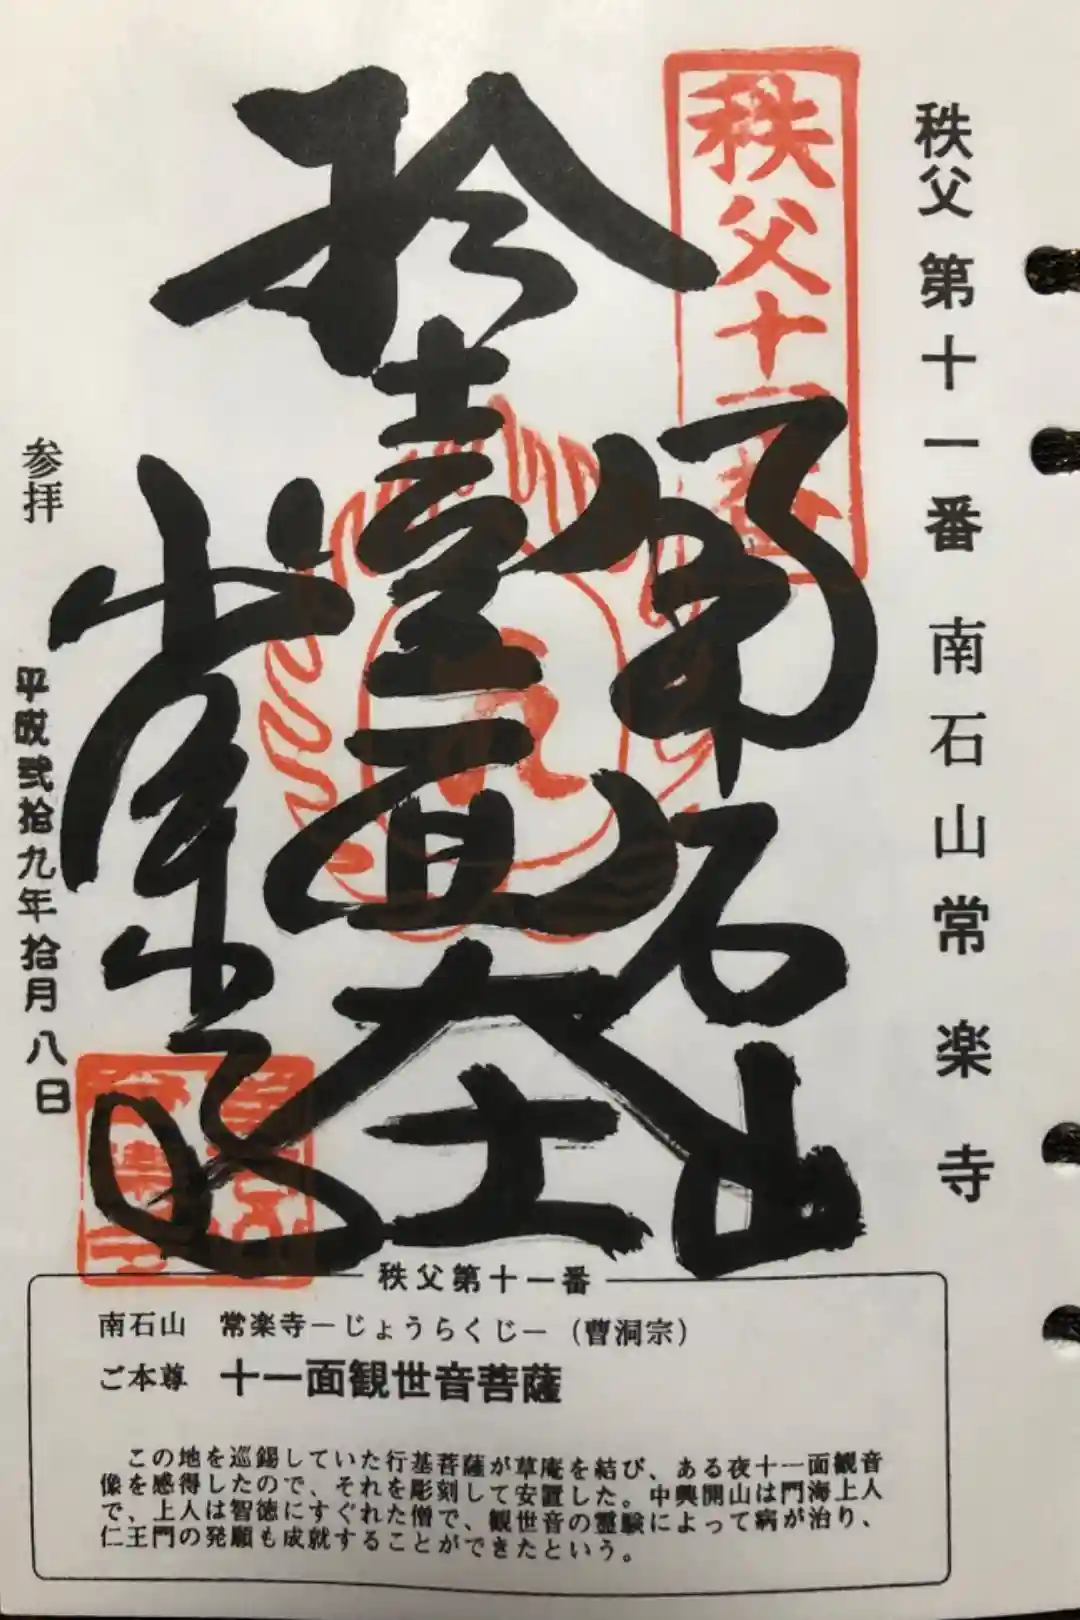 秩父 第十一番 南石山常楽寺
秩父十一番
南石山
拾壹面大士
常楽寺
参拝
平成弐拾九年拾月八日
秩父第十一番
南石山 常楽寺－じょうらくじ－（曹洞宗）
ご本尊 十一面観世音菩薩
この地を巡錫していた行基菩薩が草庵を結び、ある夜十一面観音
像を感得したので、それを彫刻して安置した。中興開山は門海上人
で、上人は智徳にすぐれた僧で、観世音の霊験によって病が治り、
仁王門の発願も成就することができたという。